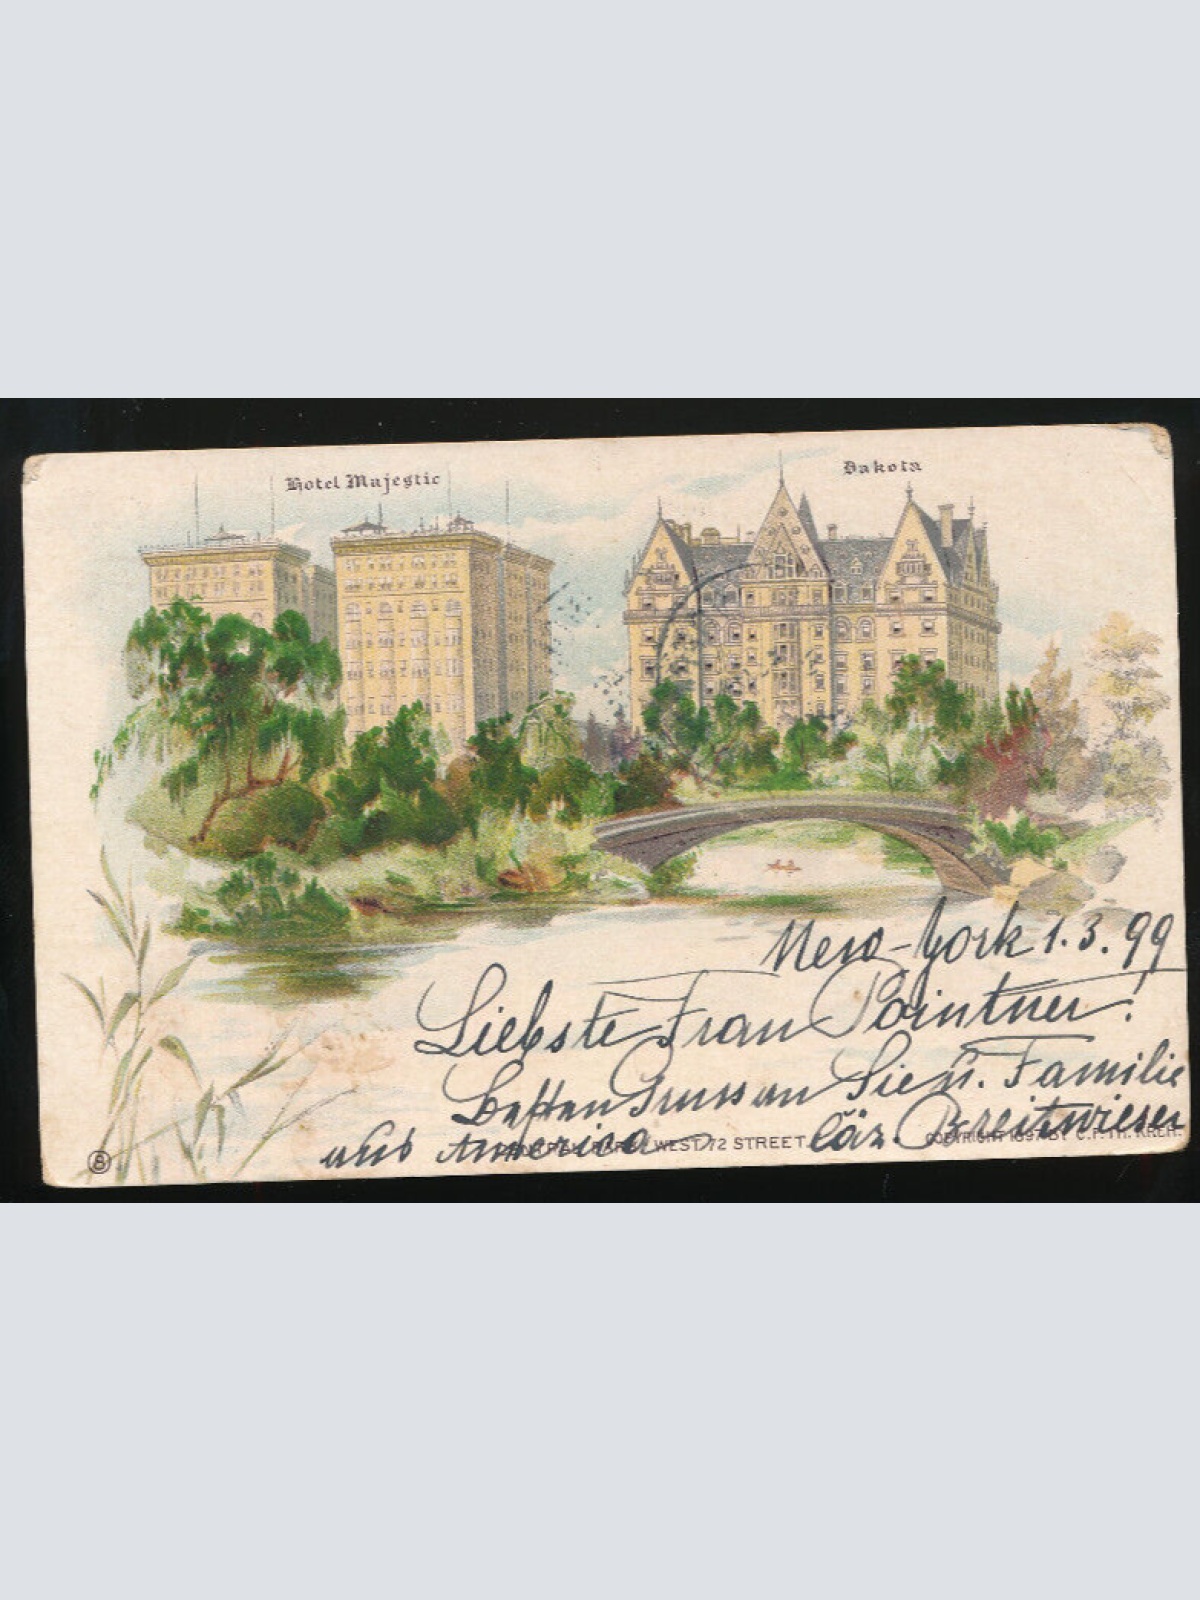 Hotel Majestic
Dakota
New-York 1.3.99
Liebste Frau Pointner!
Besten Gruss an Sie u. Familie
aus America
WEST 72 STREET
Breitwieser
COPYRIGHT 1897 BY